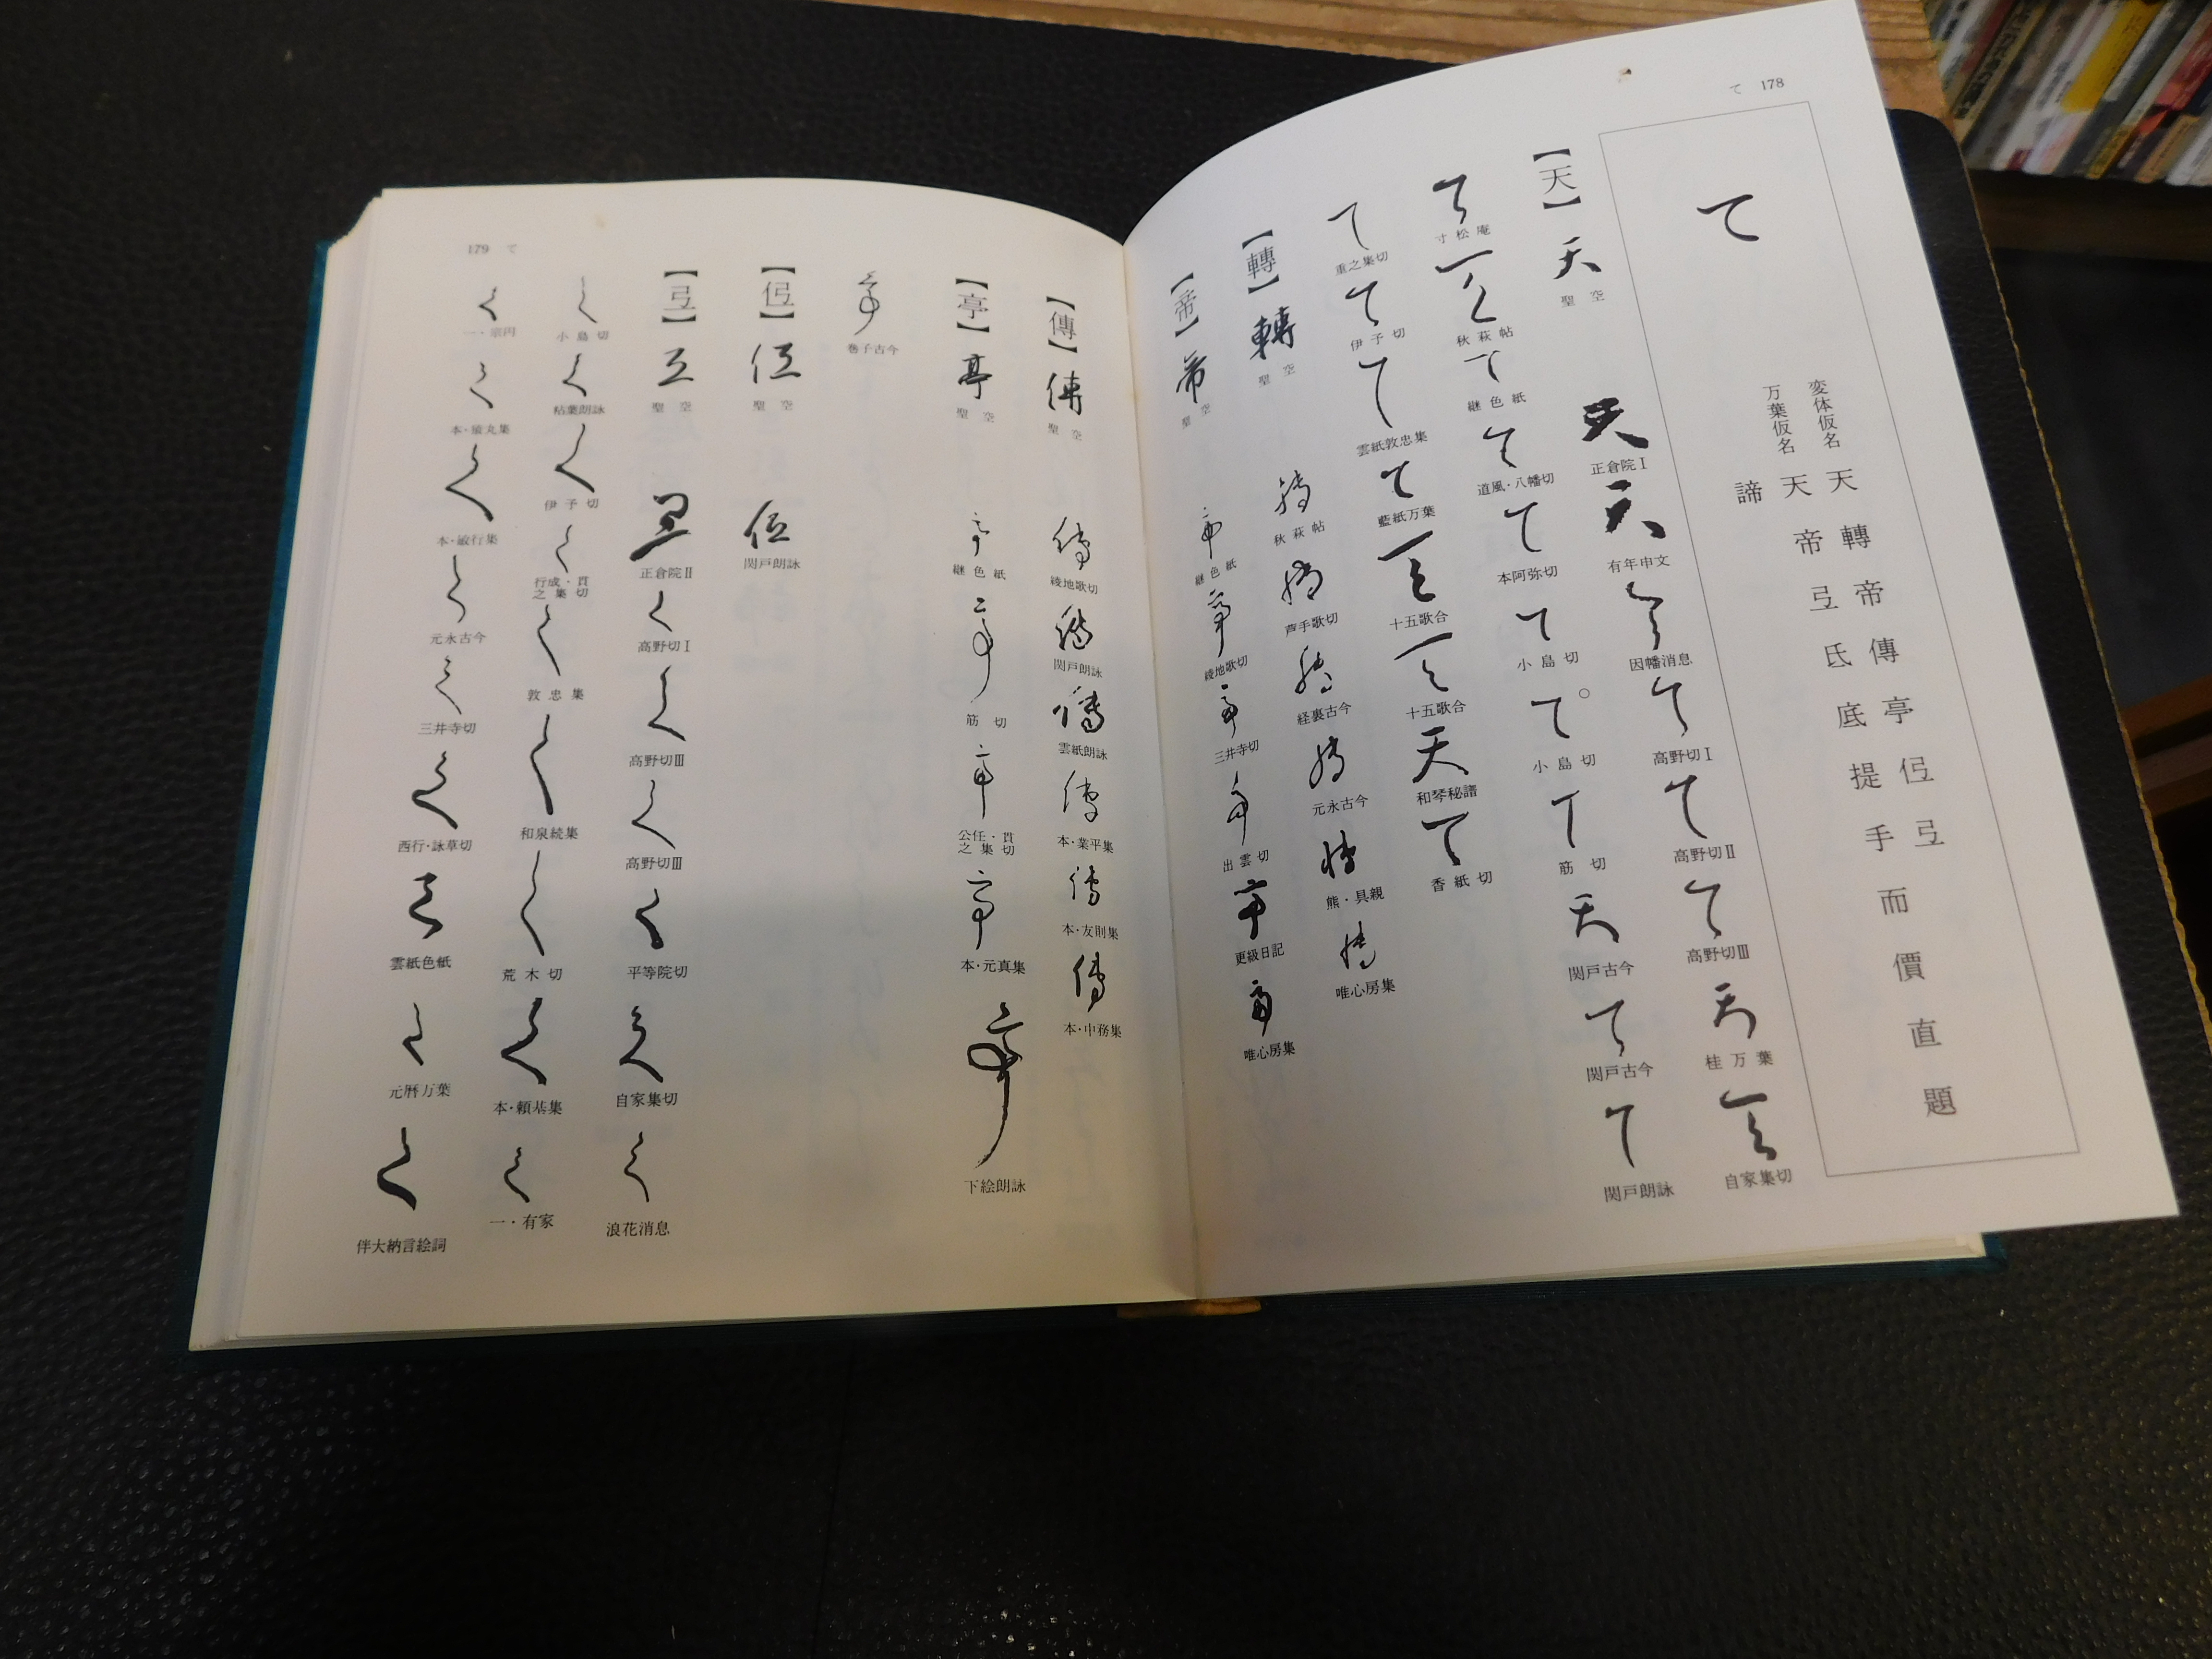 て 178
て
変体仮名 天 轉 帝 傳 亭 㑐 弖
万葉仮名 天 帝 弖 氐 底 提 手 而 價 直 題
諦
【天】 天 聖空
天 正倉院Ⅰ
天 有年申文
て 因幡消息
て 高野切Ⅰ
て 高野切Ⅱ
て 高野切Ⅲ
天 桂万葉
て 自家集切
て 寸松庵
て 秋萩帖
て 継色紙
て 道風・八幡切
て 本阿弥切
て 小島切
て 小島切
て 筋切
天 関戸古今
て 関戸古今
て 関戸朗詠
て 重之集切
て 伊予切
て 雲紙敦忠集
て 藍紙万葉
て 十五歌合
て 十五歌合
天 和琴秘譜
て 香紙切
【轉】 轉 聖空
轉 秋萩帖
轉 芦手歌切
轉 経裏古今
轉 元永古今
轉 熊・具親
轉 唯心房集
【帝】 帝 聖空
帝 継色紙
帝 綾地歌切
帝 三井寺切
帝 出雲切
帝 更級日記
帝 唯心房集
179 て
【傳】 傳 聖空
傳 綾地歌切
傳 関戸朗詠
傳 雲紙朗詠
傳 本・業平集
傳 本・友則集
傳 本・中務集
【亭】 亭 聖空
亭 継色紙
亭 筋切
亭 公任・貫之集切
亭 本・元真集
亭 下絵朗詠
亭 巻子古今
【㑐】 㑐 聖空
㑐 関戸朗詠
【弖】 弖 聖空
弖 正倉院Ⅱ
弖 高野切Ⅰ
弖 高野切Ⅲ
弖 高野切Ⅲ
弖 平等院切
弖 自家集切
弖 浪花消息
弖 小島切
弖 粘葉朗詠
弖 伊予切
弖 行成・貫之集切
弖 敦忠集
弖 和泉続集
弖 荒木切
弖 本・頼基集
弖 一・有家
弖 一・宗円
弖 本・猿丸集
弖 本・敏行集
弖 元永古今
弖 三井寺切
弖 西行・詠草切
弖 雲紙色紙
弖 元暦万葉
弖 伴大納言絵詞